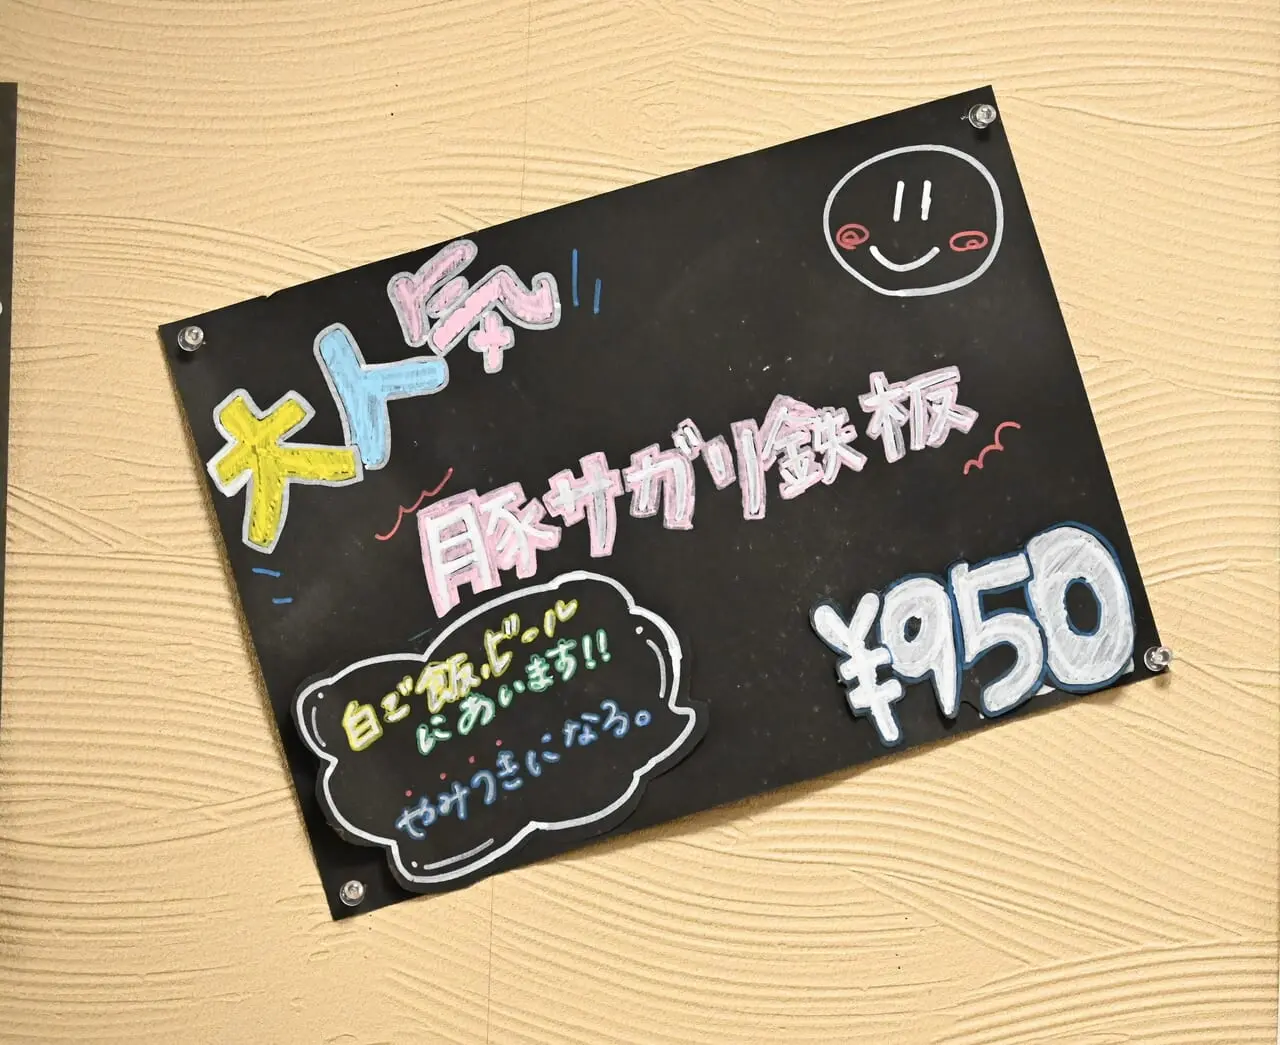 大人気
豚サガリ鉄板
白ご飯、ビール
にあいます!!
やみつきになる。
¥950